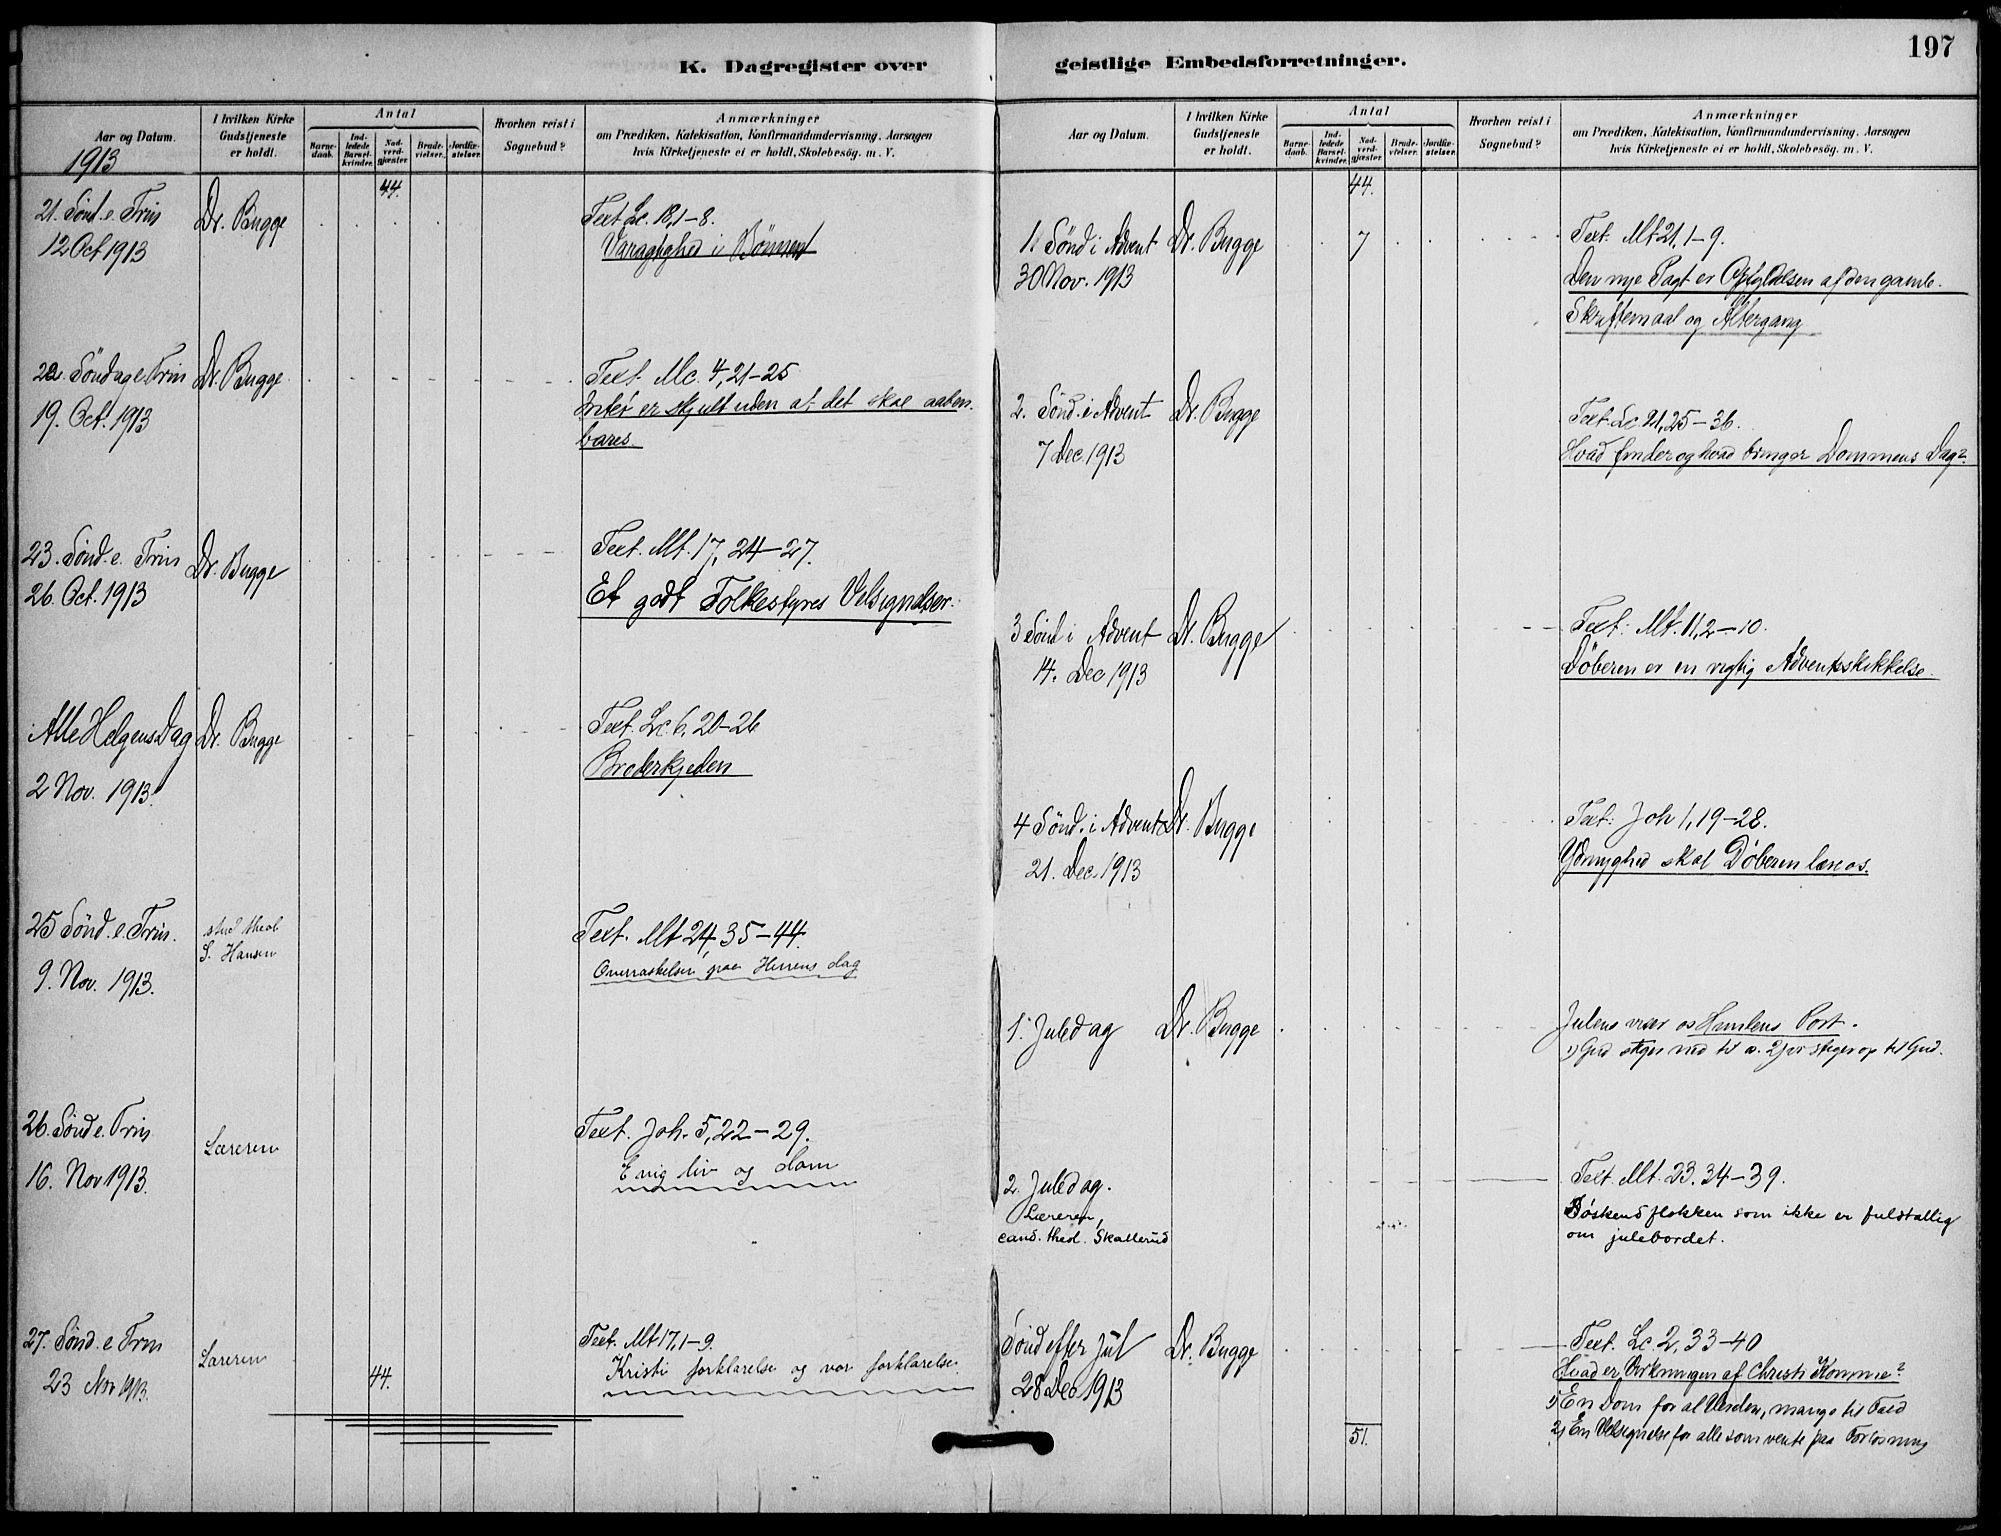 197
K. Dagregister over geistlige Embedsforretninger.
Aar og Datum.
I hvilken Kirke Gudstjeneste er holdt.
Antal
Barne-daab.
Ind-ledede Barsel-kvinder.
Nad-verd-gjæster.
Brude-vielser.
Jordfæ-stelser.
Hvorhen reist i Sognebud?
Anmærkninger
om Prædiken, Katekisation, Konfirmandundervisning, Aarsagen
hvis Kirketjeneste ei er holdt, Skolebesøg. m. V.
1913
44.
21. Sönd. e. Trin Dr. Bugge Text Lc. 18,1-8.
12 Oct 1913 i Bönnen
22. Söndag e. Trin Dr. Bugge Text. Mc. 4,21-25
19. Oct. 1913 Intet er skjult uden at det skal aaben.
bares
23. Sönd. e. Trin Dr. Bugge Text. Mt. 17, 24-27.
26. Oct. 1913 Et godt Folkestyres Velsignelser.
Alle Helgens Dag Dr. Bugge Text. Lc. 6, 20-26
2 Nov. 1913. Broderkjeden
25 Sönd. e. Trin. stud theol Text. Mt 24, 35-44.
S. Hansen
9. Nov. 1913. Overraskelser paa Herrens dag
26. Sönd e. Trin Læreren Text. Joh. 5,22-29.
16. Nov 1913. Evig liv og dom
27. Sönd. e Trin Læreren 44. Text. Mt 17,1-9.
23 Nov 1913. Kristi forklarelse og vor forklarelse.
Aar og Datum.
I hvilken Kirke Gudstjeneste er holdt.
Antal
Barne-daab.
Ind-ledede Barsel-kvinder.
Nad-verd-gjæster.
Brude-vielser.
Jordfæ-stelser.
Hvorhen reist i Sognebud?
Anmærkninger
om Prædiken, Katekisation, Konfirmandundervisning, Aarsagen
hvis Kirketjeneste ei er holdt, Skolebesøg. m. V.
44.
1. Sönd i Advent Dr. Bugge 7 Text. Mt 21, 1-9.
30 Nov. 1913 Den nye Pagt er Opfyldelsen af den gamle.
Skriftemaal og Altergang
2. Sönd. i Advent Dr. Bugge Text. Lc. 21,25-36.
7 Dec. 1913 Hvad finder og hvad bringer Dommens Dag?
3 Sönd i Advent Dr. Bugge Text: Mt. 11,2-10.
14. Dec 1913 Döberen er en vigtig Adventsskikkelse.
4 Sönd. i Advent Dr. Bugge Text: Joh 1,19-28.
21. Dec. 1913 Ydmyghed skal Döberen lære os.
1. Juledag Dr. Bugge Julens viser os Himlens Port.
1) Gud stiger ned til os. 2) vi stiger op til Gud.
2. Juledag. Text. Mt. 23. 34-39.
Læreren, Söskendflokken som ikke er fuldtallig
cand. theol. Skallerud om julebordet.
Sönd efter Jul Dr. Bugge Text. Lc. 2, 33-40
28 Dec 1913 Hvad er Virkningen af Christi Komme?
1) En Dom for al Verden, mange til Fald
51. 2) En Velsignelse for alle som vente paa Forlösning